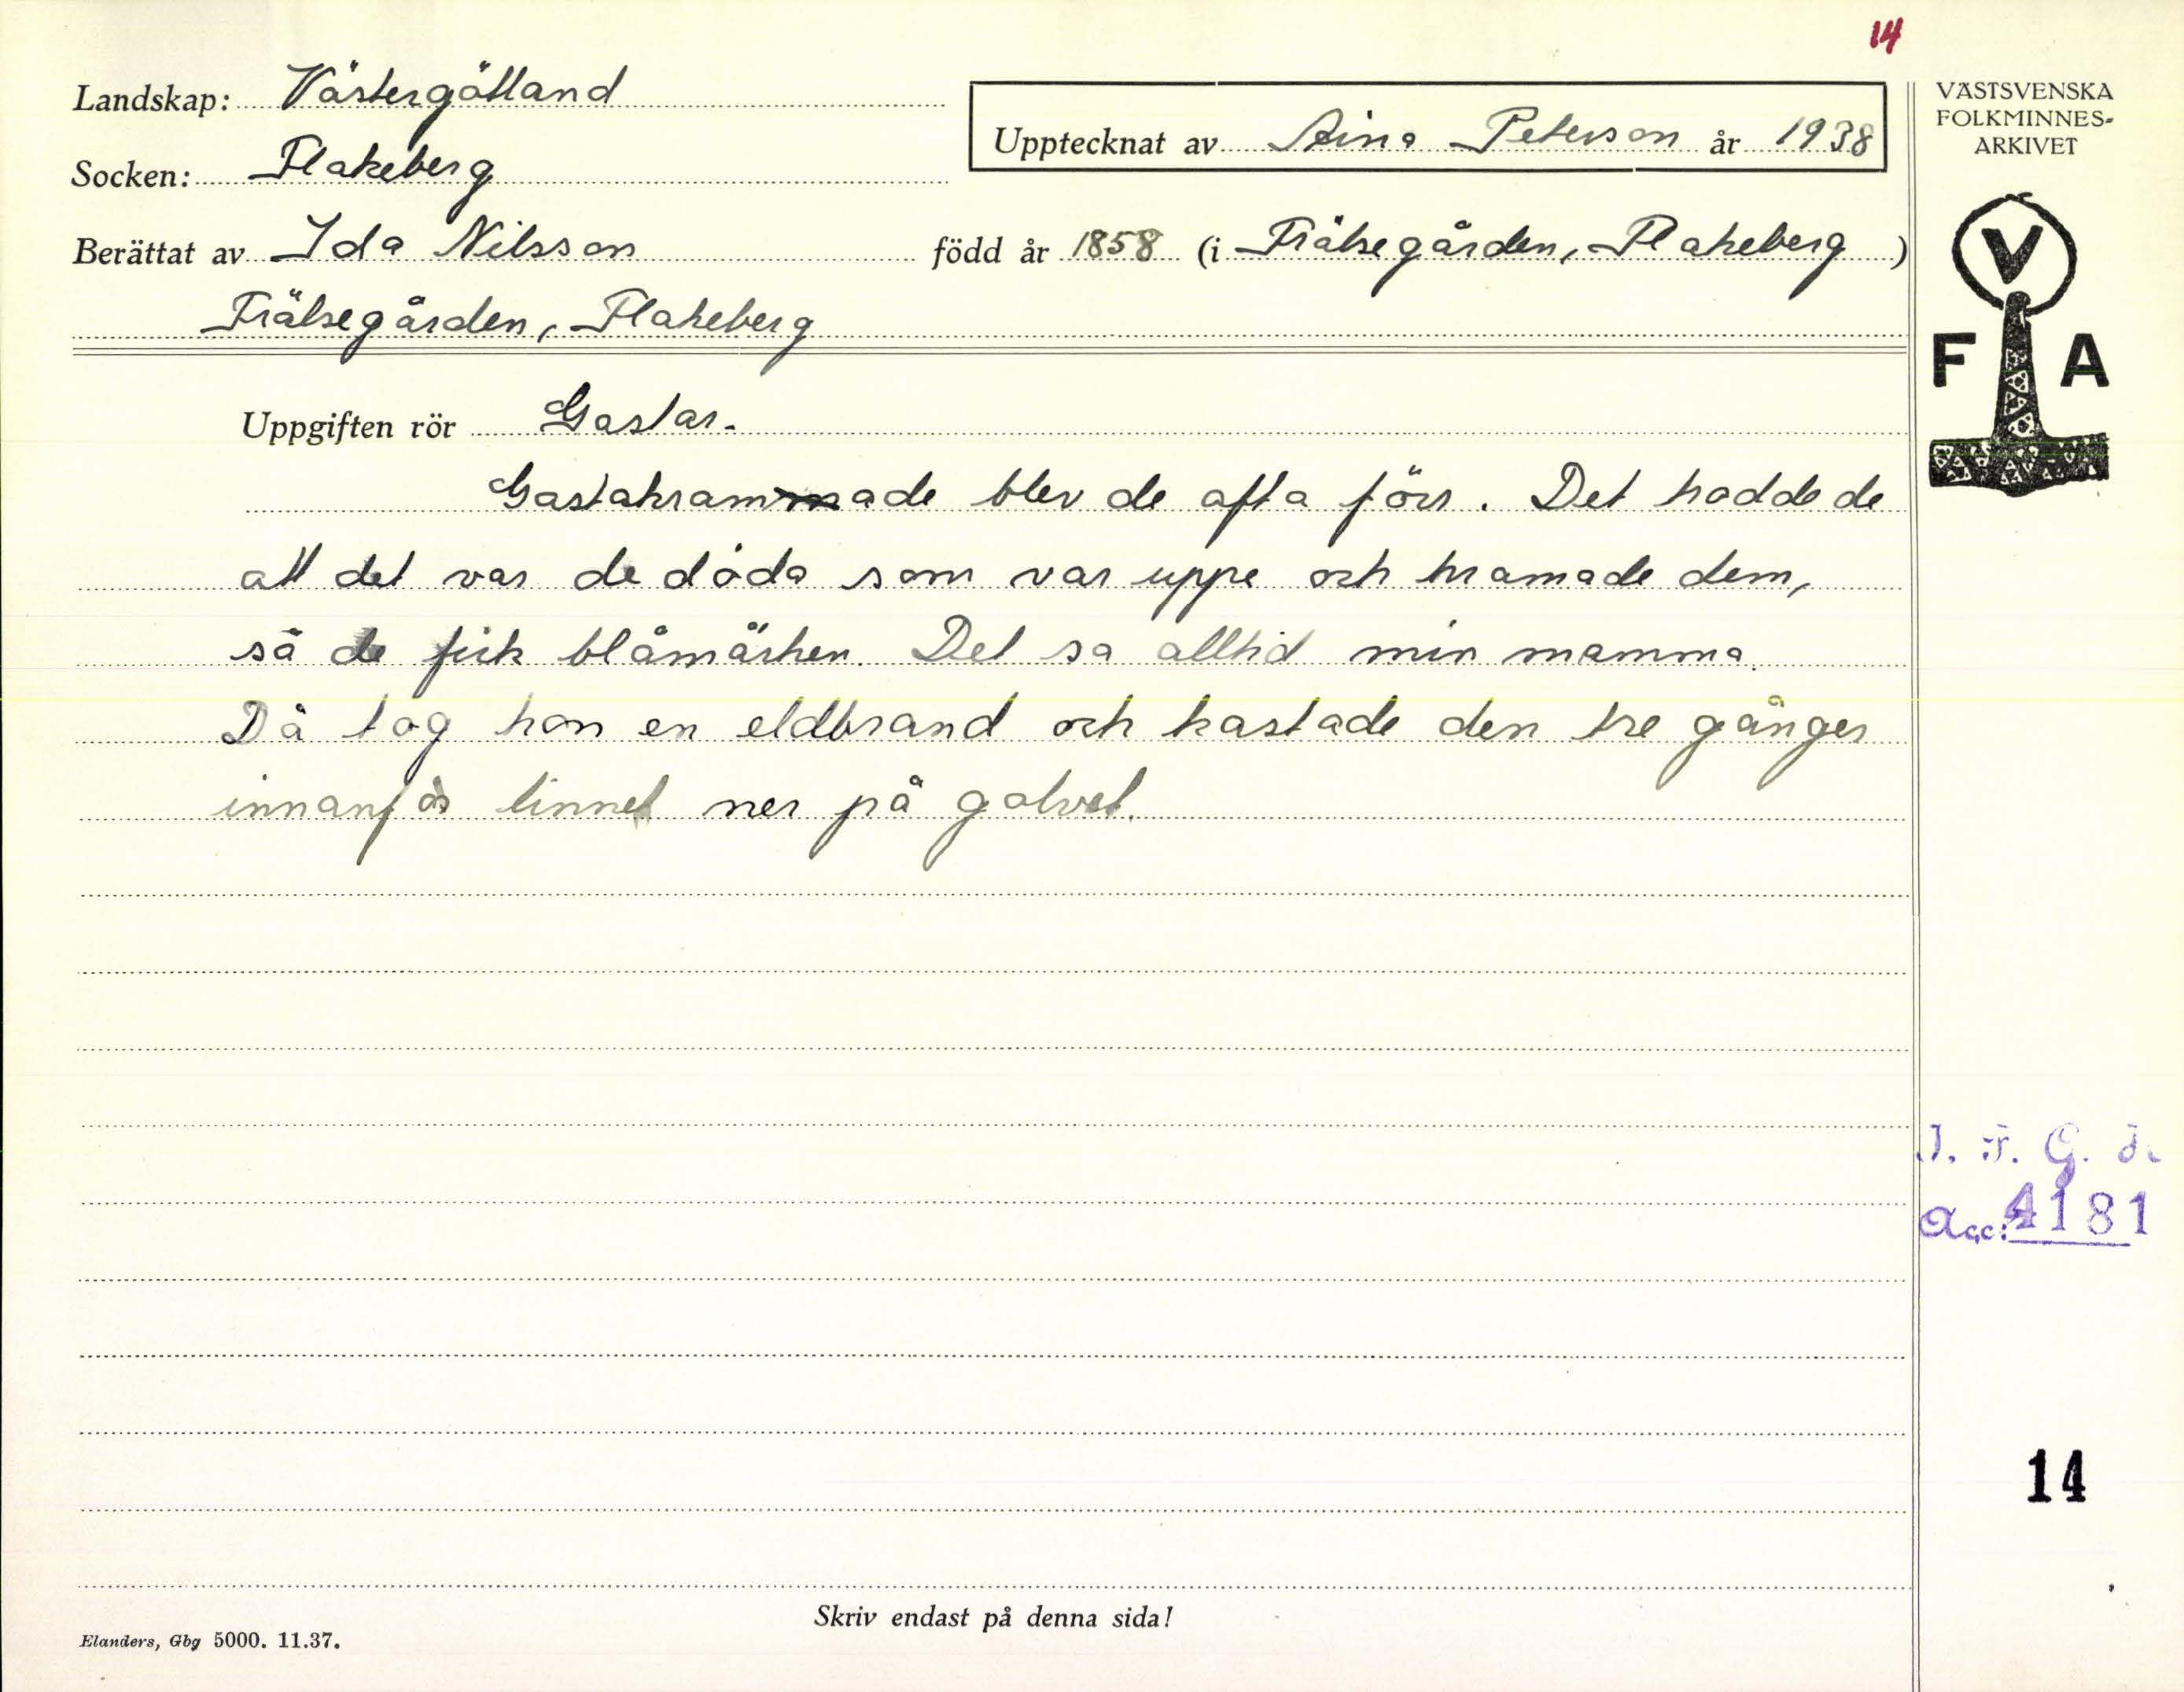 14
Landskap: Västergötland
Upptecknat av Aina Peterson år 1938
Socken: Flakeberg
Berättat av Ida Nilsson född år 1858 (i Frälsegården, Flakeberg)
Frälsegården, Flakeberg
VÄSTSVENSKA
FOLKMINNES-
ARKIVET
V
F A
Uppgiften rör Gastar.
Gastakrammade blev de ofta förr. Det trodde de
att det var de döda som var uppe och kramade dem,
så de fick blåmärken. Det sa alltid min mamma.
Då tog hon en eldbrand och kastade den tre gånger
innanför linnet ner på golvet.
Acc: 4181
14
Skriv endast på denna sida!
Elanders, Gbg 5000. 11.37.